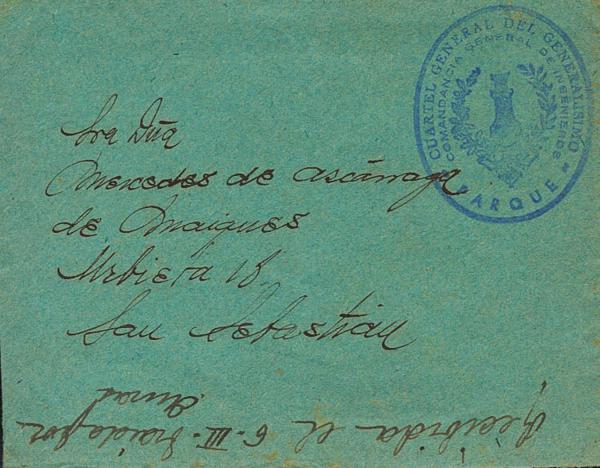 CUARTEL GENERAL DEL GENERALISIMO
COMANDANCIA GENERAL DE INGENIEROS
PARQUE
Sra Dña
Mercedes de Ascárraga
de Maiques
Urbieta 18
San Sebastian
Recibida el 6-III- traida por